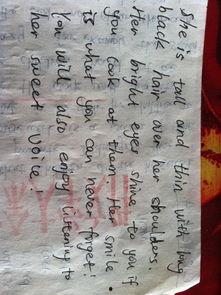 She is tall and thin with long
black hair over her shoulders.
Her bright eyes shine to you if
you look at them. Her smile
is what you can never forget!
You will also enjoy listening to
her sweet voice!